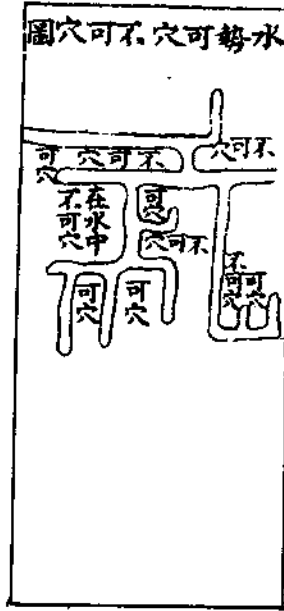 水勢可穴不可穴圖
不可穴
不可穴
可穴
可穴
在水中
不可穴
不可穴
可穴
不可穴
可穴
可穴